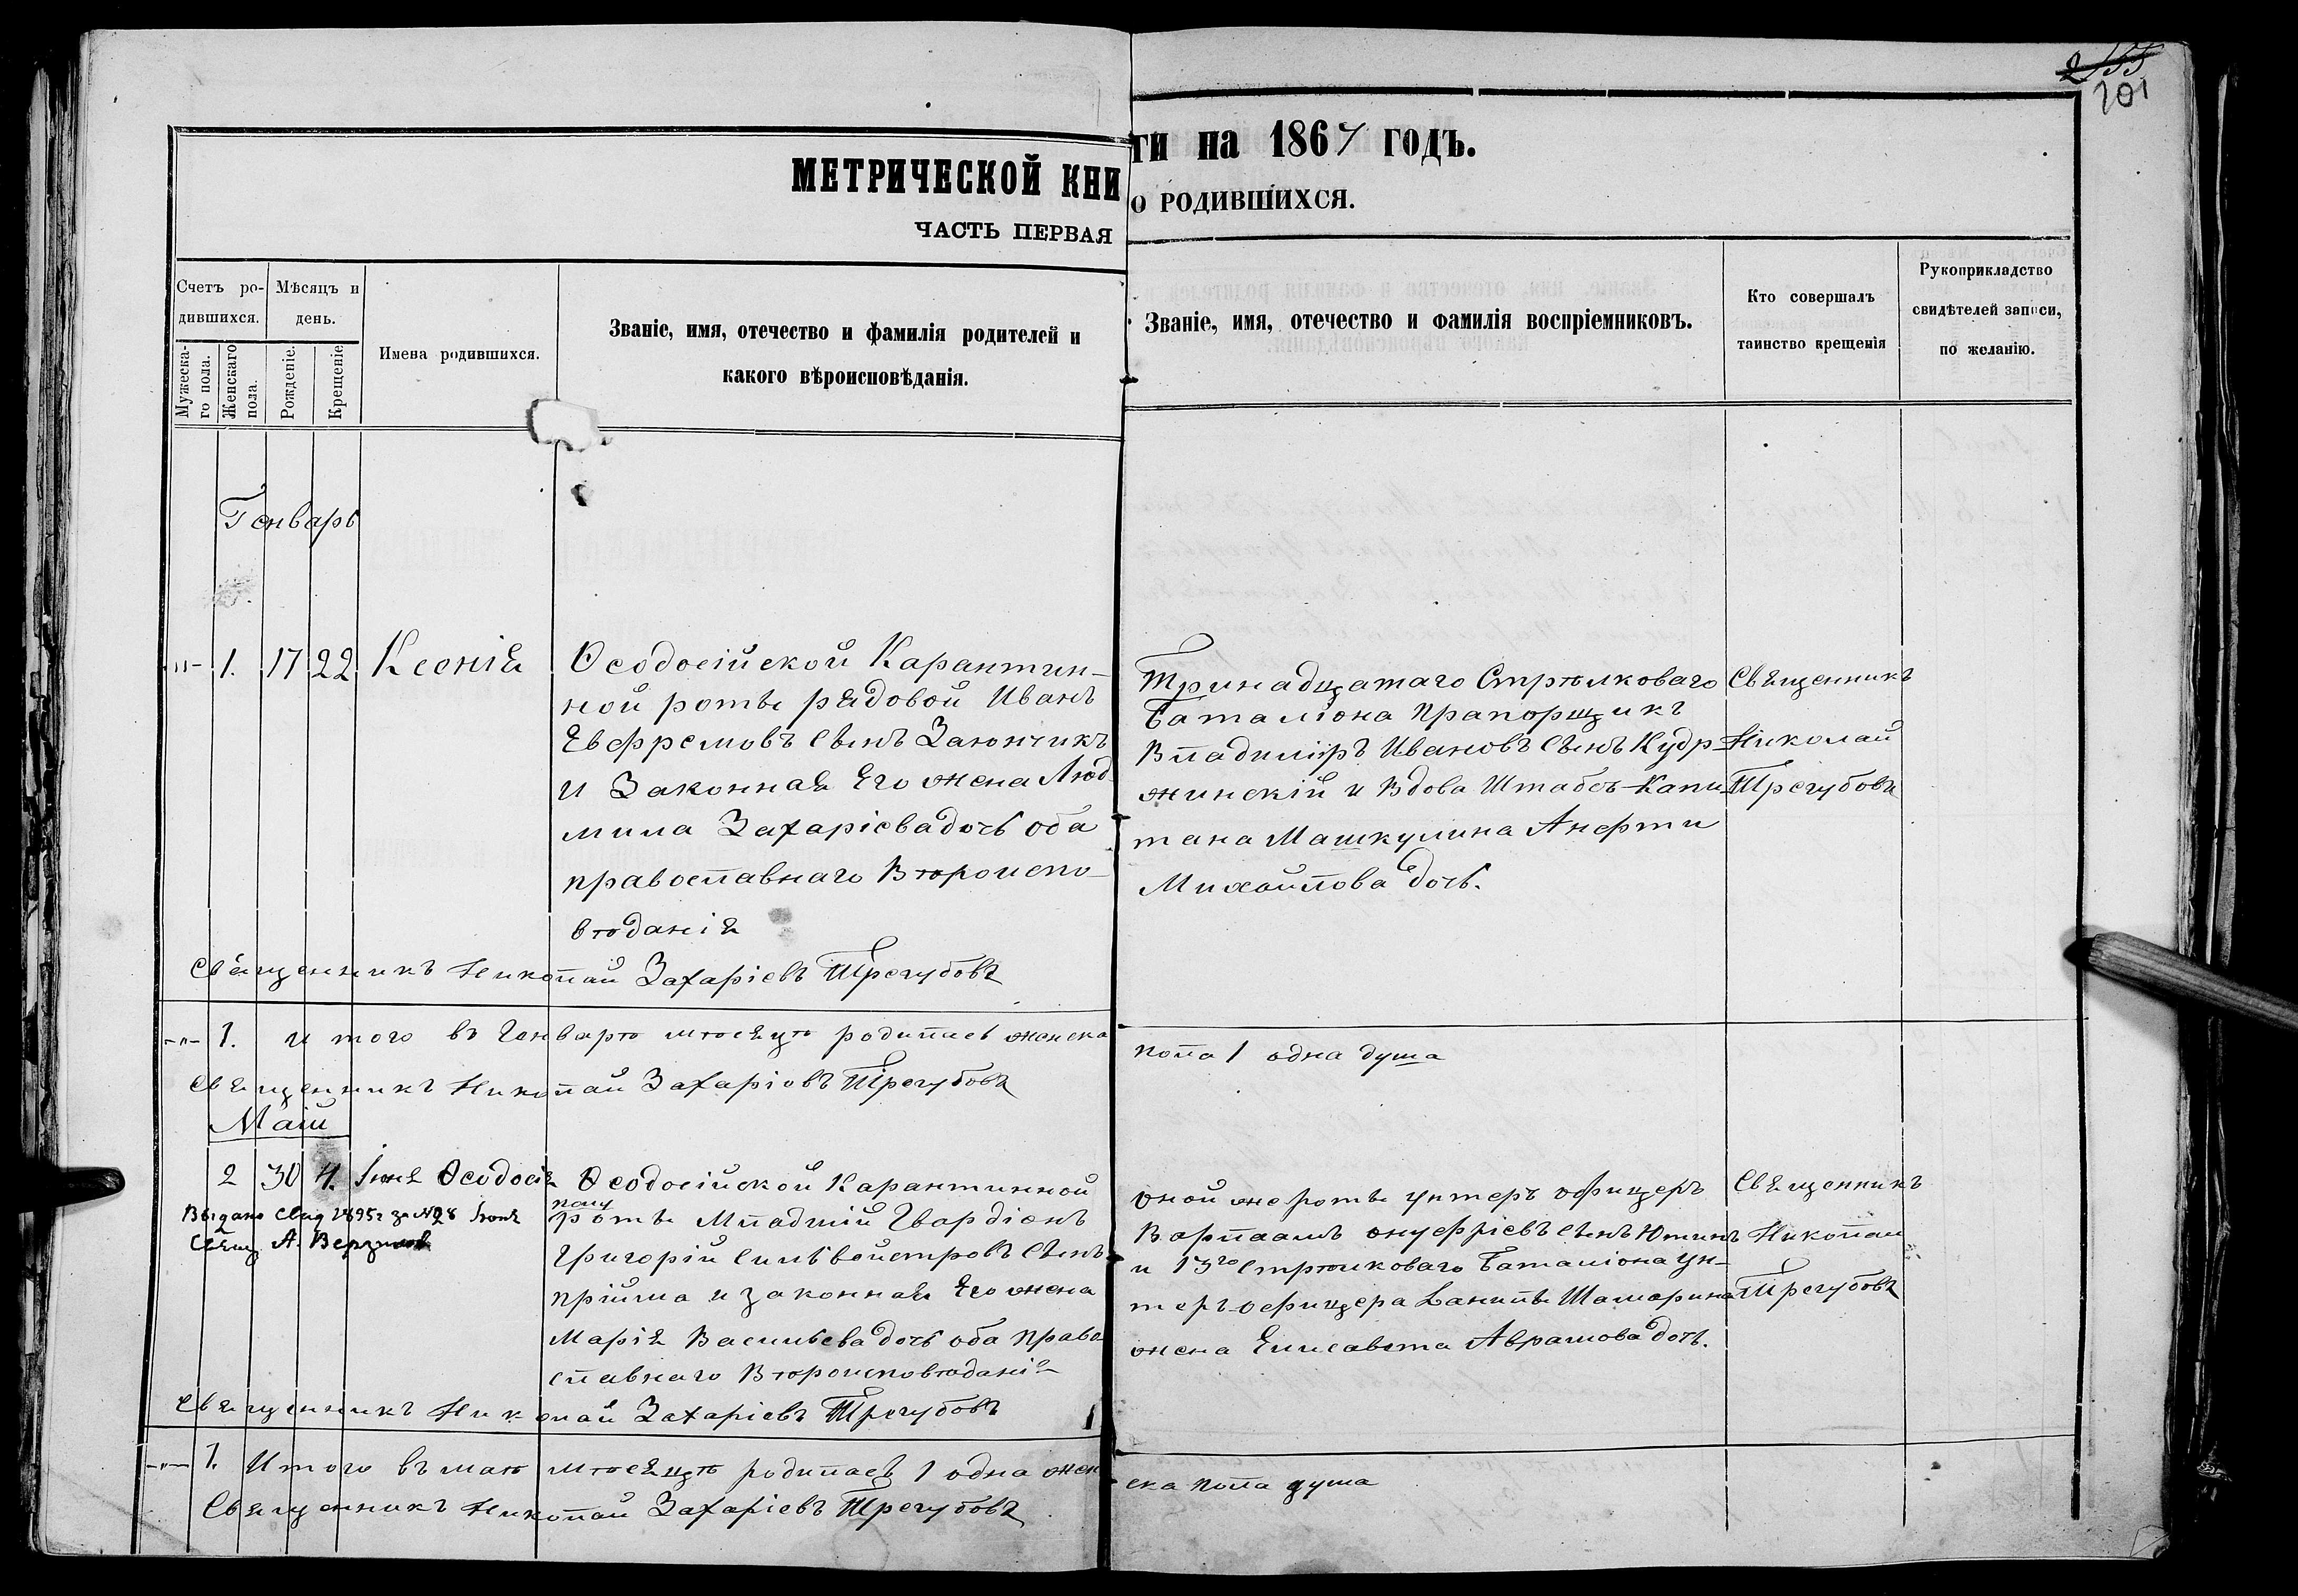 2155
201
МЕТРИЧЕСКОЙ КНИ
ТИ на 1867 ГОДЪ.
ЧАСТЬ ПЕРВАЯ
О РОДИВШИХСЯ.
Счетъ ро-
дившихся.
Мужеска-
го пола.
Женскаго
пола.
Мѣсяцъ и
день.
Рожденіе.
Крещеніе
Имена родившихся.
Званіе, имя, отечество и фамилія родителей и
какого вѣроисповѣданія.
Званіе, имя, отечество и фамилія воспріемниковъ.
Кто совершалъ
таинство крещенія
Рукоприкладство
свидѣтелей записи,
по желанію.
Генварь
-"- 1. 17 22 Ксенія
Ѳеодосійской Карантин-
ной роты рядовой Иванъ
Евфремовъ сынъ Заюнчикъ
и Законная Его жена Люд
мила Захаріева дочь оба
православнаго Вѣроиспо-
вѣданія
Тринадцатаго Стрѣлковаго
Баталіона прапорщикъ
Владиміръ Ивановъ Сынъ Кудр-
жинскій и Вдова Штабсъ-Капи-
тана Машкулина Анфти
Михайлова дочь.
Священникъ
Николай
Трегубовъ
Священникъ Николай Захаріевъ Трегубовъ
-"- 1. и того въ Генварѣ мѣсяцѣ родилась женска
пола 1 одна душа
Священникъ Николай Захаріовъ Трегубовъ
Маій
2 30 4. Іюня Ѳеодосія
Выдано свид 1895 г за №28 Іюня
Свящ А.
Ѳеодосійской Карантинной
роты Младшій Гвардіонъ
Григорій Сильвойстровъ Сынъ
Пріима и законная Его жена
Марія Васильева дочь оба право
славнаго Вѣроисповѣданія
оной же роты унтеръ офицеръ
Варлаамъ онуфріевъ сынъ Ютинъ
и 13го Стрѣлковаго Баталіона ун-
теръ-офицера Данилы Шамарина
жена Елисавета Аврамова дочь.
Священникъ
Николай
Трегубовъ
Священникъ Николай Захаріевъ Трегубовъ
-"- 1. Итого въ маѣ мѣсяцѣ родилась 1 одна жен
ска пола душа
Священникъ Николай Захаріевъ Трегубовъ